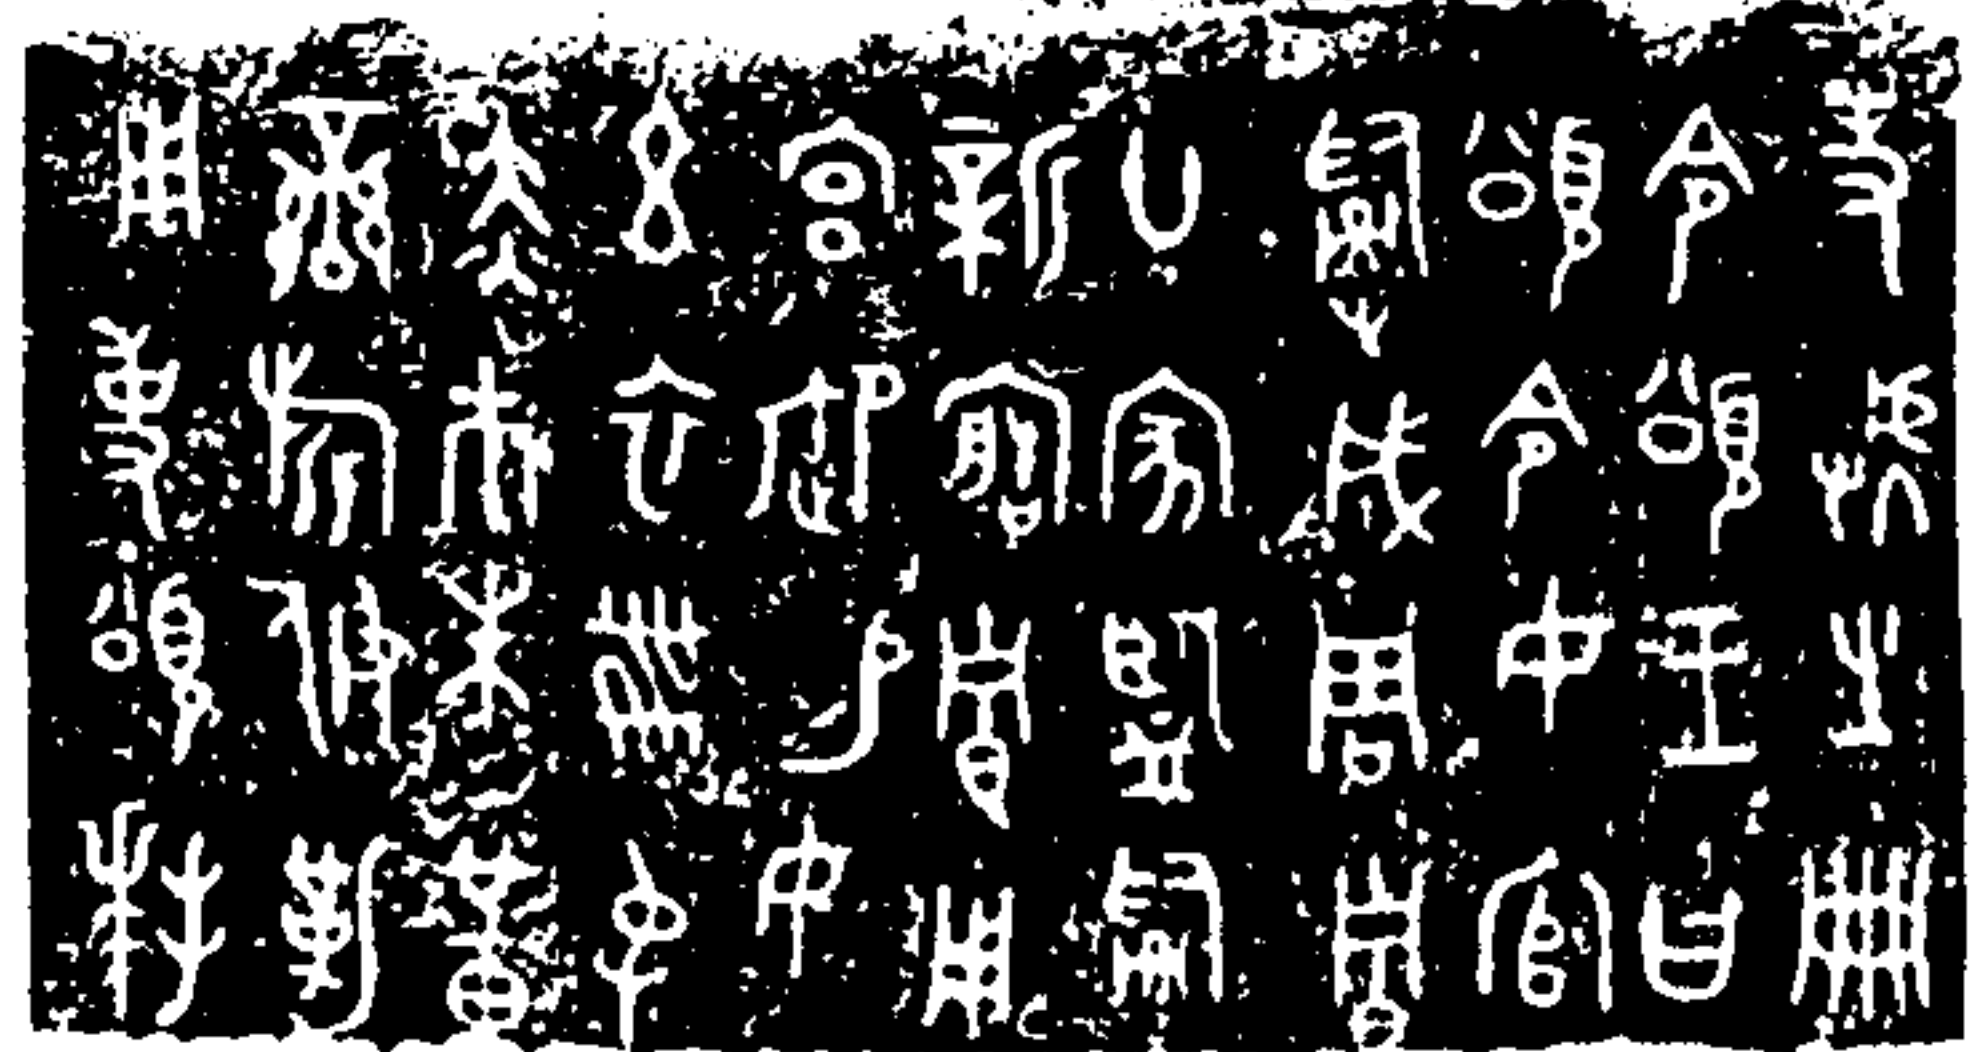 史虢生冊
令頌王曰
頌令女官
𤔲成周貯
廿家監𤔲
新造貯用
宮御易女
玄衣黹屯
赤巿朱黃
䜌旂攸勒
用事頌拜